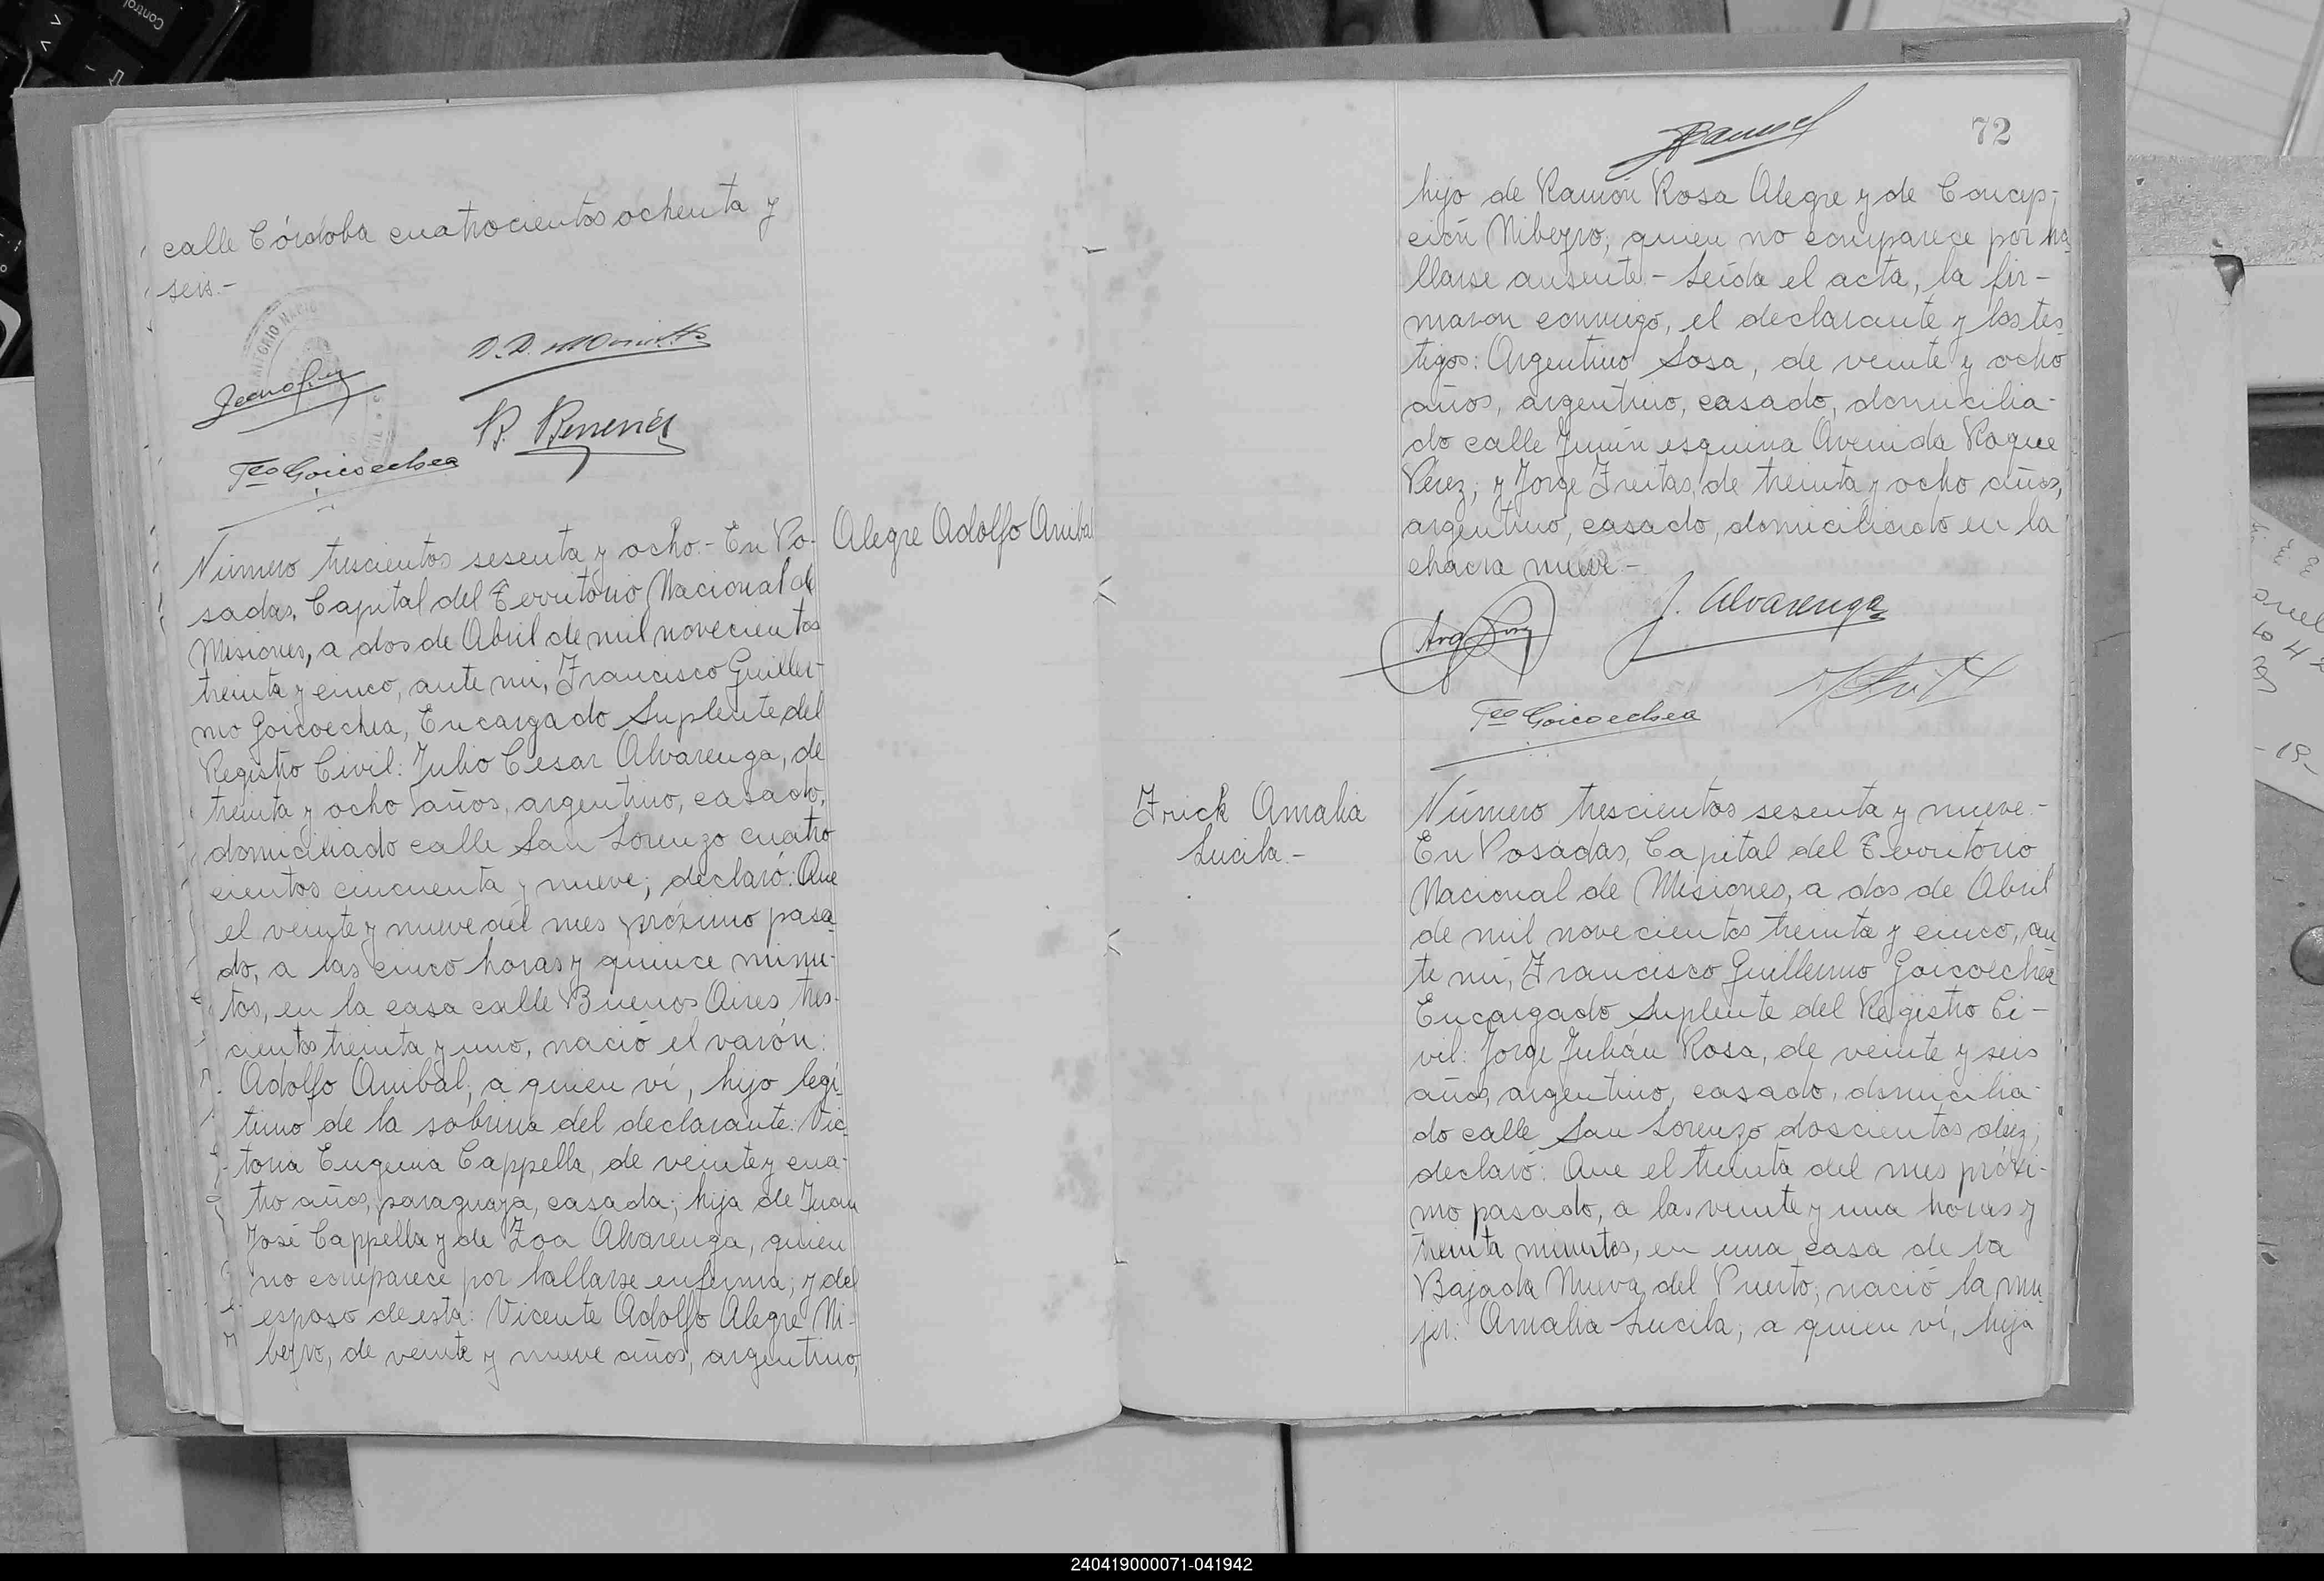 calle Córdoba cuatrocientos ochenta y
seis.-
B. Benenes
Fco Goicoechea
Número trescientos sesenta y ocho.- En Po-
sadas, Capital del Territorio Nacional de
Misiones, a dos de Abril de mil novecientos
treinta y cinco, ante mi, Francisco Guiller-
mo Goicoechea, Encargado Suplente del
Registro Civil: Julio Cesar Alvarenga, de
treinta y ocho años, argentino, casado,
domiciliado calle San Lorenzo cuatro
cientos cincuenta y nueve; declaró: Que
el veinte y nueve del mes próximo pasa
do, a las cinco horas y quince minu-
tos, en la casa calle Buenos Aires tres-
cientos treinta y uno, nació el varón:
Adolfo Anibal, a quien ví, hijo legí-
timo de la sobrina del declarante: Vic-
toria Eugenia Cappella, de veinte y cua-
tro años, paraguaya, casada; hija de Juan
José Cappella y de Zoa Alvarenga, quien
no comparece por hallarse enferma; y del
esposo de esta: Vicente Adolfo Alegre Ni-
beyro, de veinte y nueve años, argentino,
Alegre Adolfo Anibal
72
hijo de Ramón Rosa Alegre y de Concep-
ción Nibeyro; quien no comparece por ha
llarse ausente - Leída el acta, la fir-
maron conmigo, el declarante y los tes
tigos: Argentino Sosa, de veinte y ocho
años, argentino, casado, domicilia-
do calle Junín esquina Avenida Roque
Pérez; y Jorge Freitas, de treinta y ocho años,
argentino, casado, domiciliado en la
chacra nueve-
J. Alvarenga
Fco Goicoechea
Frick Amalia
Lucila.-
Número trescientos sesenta y nueve.-
En Posadas, Capital del Territorio
Nacional de Misiones, a dos de Abril
de mil novecientos treinta y cinco, an
te mí, Francisco Guillermo Goicoechea
Encargado Suplente del Registro Ci-
vil: Jorge Julián Rosa, de veinte y seis
años, argentino, casado, domicilia-
do calle San Lorenzo doscientos diez;
declaró: Que el treinta del mes próxi-
mo pasado, a las veinte y una horas y
treinta minutos, en una casa de la
Bajada Nueva del Puerto; nació la mu-
jer: Amalia Lucila; a quien ví, hija
240419000071-041942